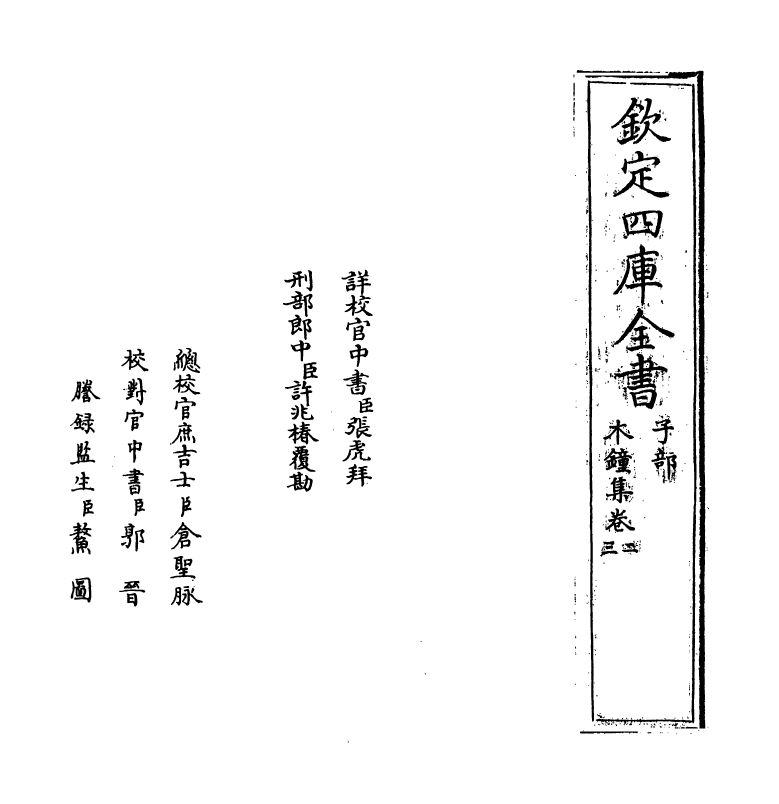 欽定四庫全書
子部
木鐘集卷二三
詳校官中書臣張虎拜
刑部郎中臣許兆椿覆勘
總校官庶吉士臣倉聖脉
校對官中書臣郭晉
謄録監生臣鰲圖